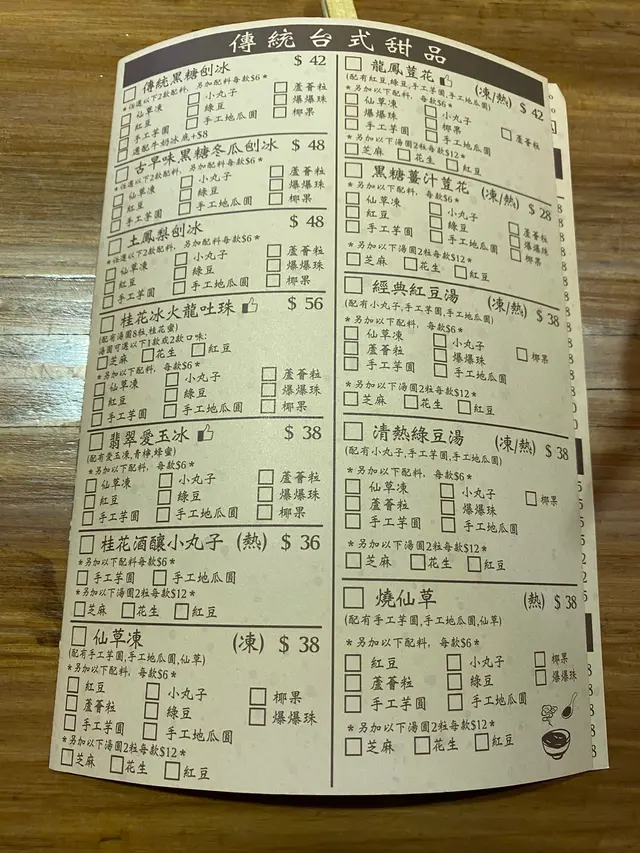 傳統台式甜品
傳統黑糖刨冰 $ 42
*任選以下2款配料, 另加配料每款$6*
仙草凍 小丸子 蘆薈粒
紅豆 綠豆 爆爆珠
手工芋圓 手工地瓜圓 椰果
適配牛奶冰底+$8
古早味黑糖冬瓜刨冰 $ 48
*任選以下2款配料, 另加配料每款$6*
仙草凍 小丸子 蘆薈粒
紅豆 綠豆 爆爆珠
手工芋圓 手工地瓜圓 椰果
土鳳梨刨冰 $ 48
*任選以下2款配料, 另加配料每款$6*
仙草凍 小丸子 蘆薈粒
紅豆 綠豆 爆爆珠
手工芋圓 手工地瓜圓 椰果
桂花冰火龍吐珠 $ 56
(配有湯圓8粒,桂花蜜)
湯圓可選以下1款或2款口味:
芝麻 花生 紅豆
*另加以下配料, 每款$6*
仙草凍 小丸子 蘆薈粒
紅豆 綠豆 爆爆珠
手工芋圓 手工地瓜圓 椰果
翡翠愛玉冰 $ 38
(配有愛玉凍,青檸,蜂蜜)
*另加以下配料, 每款$6*
仙草凍 小丸子 蘆薈粒
紅豆 綠豆 爆爆珠
手工芋圓 手工地瓜圓 椰果
桂花酒釀小丸子 (熱) $ 36
*另加以下配料每款$6*
手工芋圓 手工地瓜圓
*另加以下湯圓2粒每款$12*
芝麻 花生 紅豆
仙草凍 (凍) $ 38
(配有手工芋圓,手工地瓜圓,仙草)
*另加以下配料, 每款$6*
紅豆 小丸子 椰果
蘆薈粒 綠豆 爆爆珠
手工芋圓 手工地瓜圓
*另加以下湯圓2粒每款$12*
芝麻 花生 紅豆
龍鳳荳花 (凍/熱) $ 42
(配有紅豆,綠豆,手工芋圓,手工地瓜圓)
*另加以下配料, 每款$6*
仙草凍 小丸子 蘆薈粒
爆爆珠 椰果
手工芋圓 手工地瓜圓
*另加以下湯圓2粒每款$12*
芝麻 花生 紅豆
黑糖薑汁荳花 (凍/熱) $ 28
*另加以下配料, 每款$6*
仙草凍 小丸子 蘆薈粒
紅豆 綠豆 爆爆珠
手工芋圓 手工地瓜圓 椰果
*另加以下湯圓2粒每款$12*
芝麻 花生 紅豆
經典紅豆湯 (凍/熱) $ 38
(配有小丸子,手工芋圓,手工地瓜圓)
*另加以下配料, 每款$6*
仙草凍 小丸子 椰果
蘆薈粒 爆爆珠
手工芋圓 手工地瓜圓
*另加以下湯圓2粒每款$12*
芝麻 花生 紅豆
清熱綠豆湯 (凍/熱) $ 38
(配有小丸子,手工芋圓,手工地瓜圓)
*另加以下配料, 每款$6*
仙草凍 小丸子 椰果
蘆薈粒 爆爆珠
手工芋圓 手工地瓜圓
*另加以下湯圓2粒每款$12*
芝麻 花生 紅豆
燒仙草 (熱) $ 38
(配有手工芋圓,手工地瓜圓,仙草)
*另加以下配料, 每款$6*
紅豆 小丸子 椰果
蘆薈粒 綠豆 爆爆珠
手工芋圓 手工地瓜圓
*另加以下湯圓2粒每款$12*
芝麻 花生 紅豆